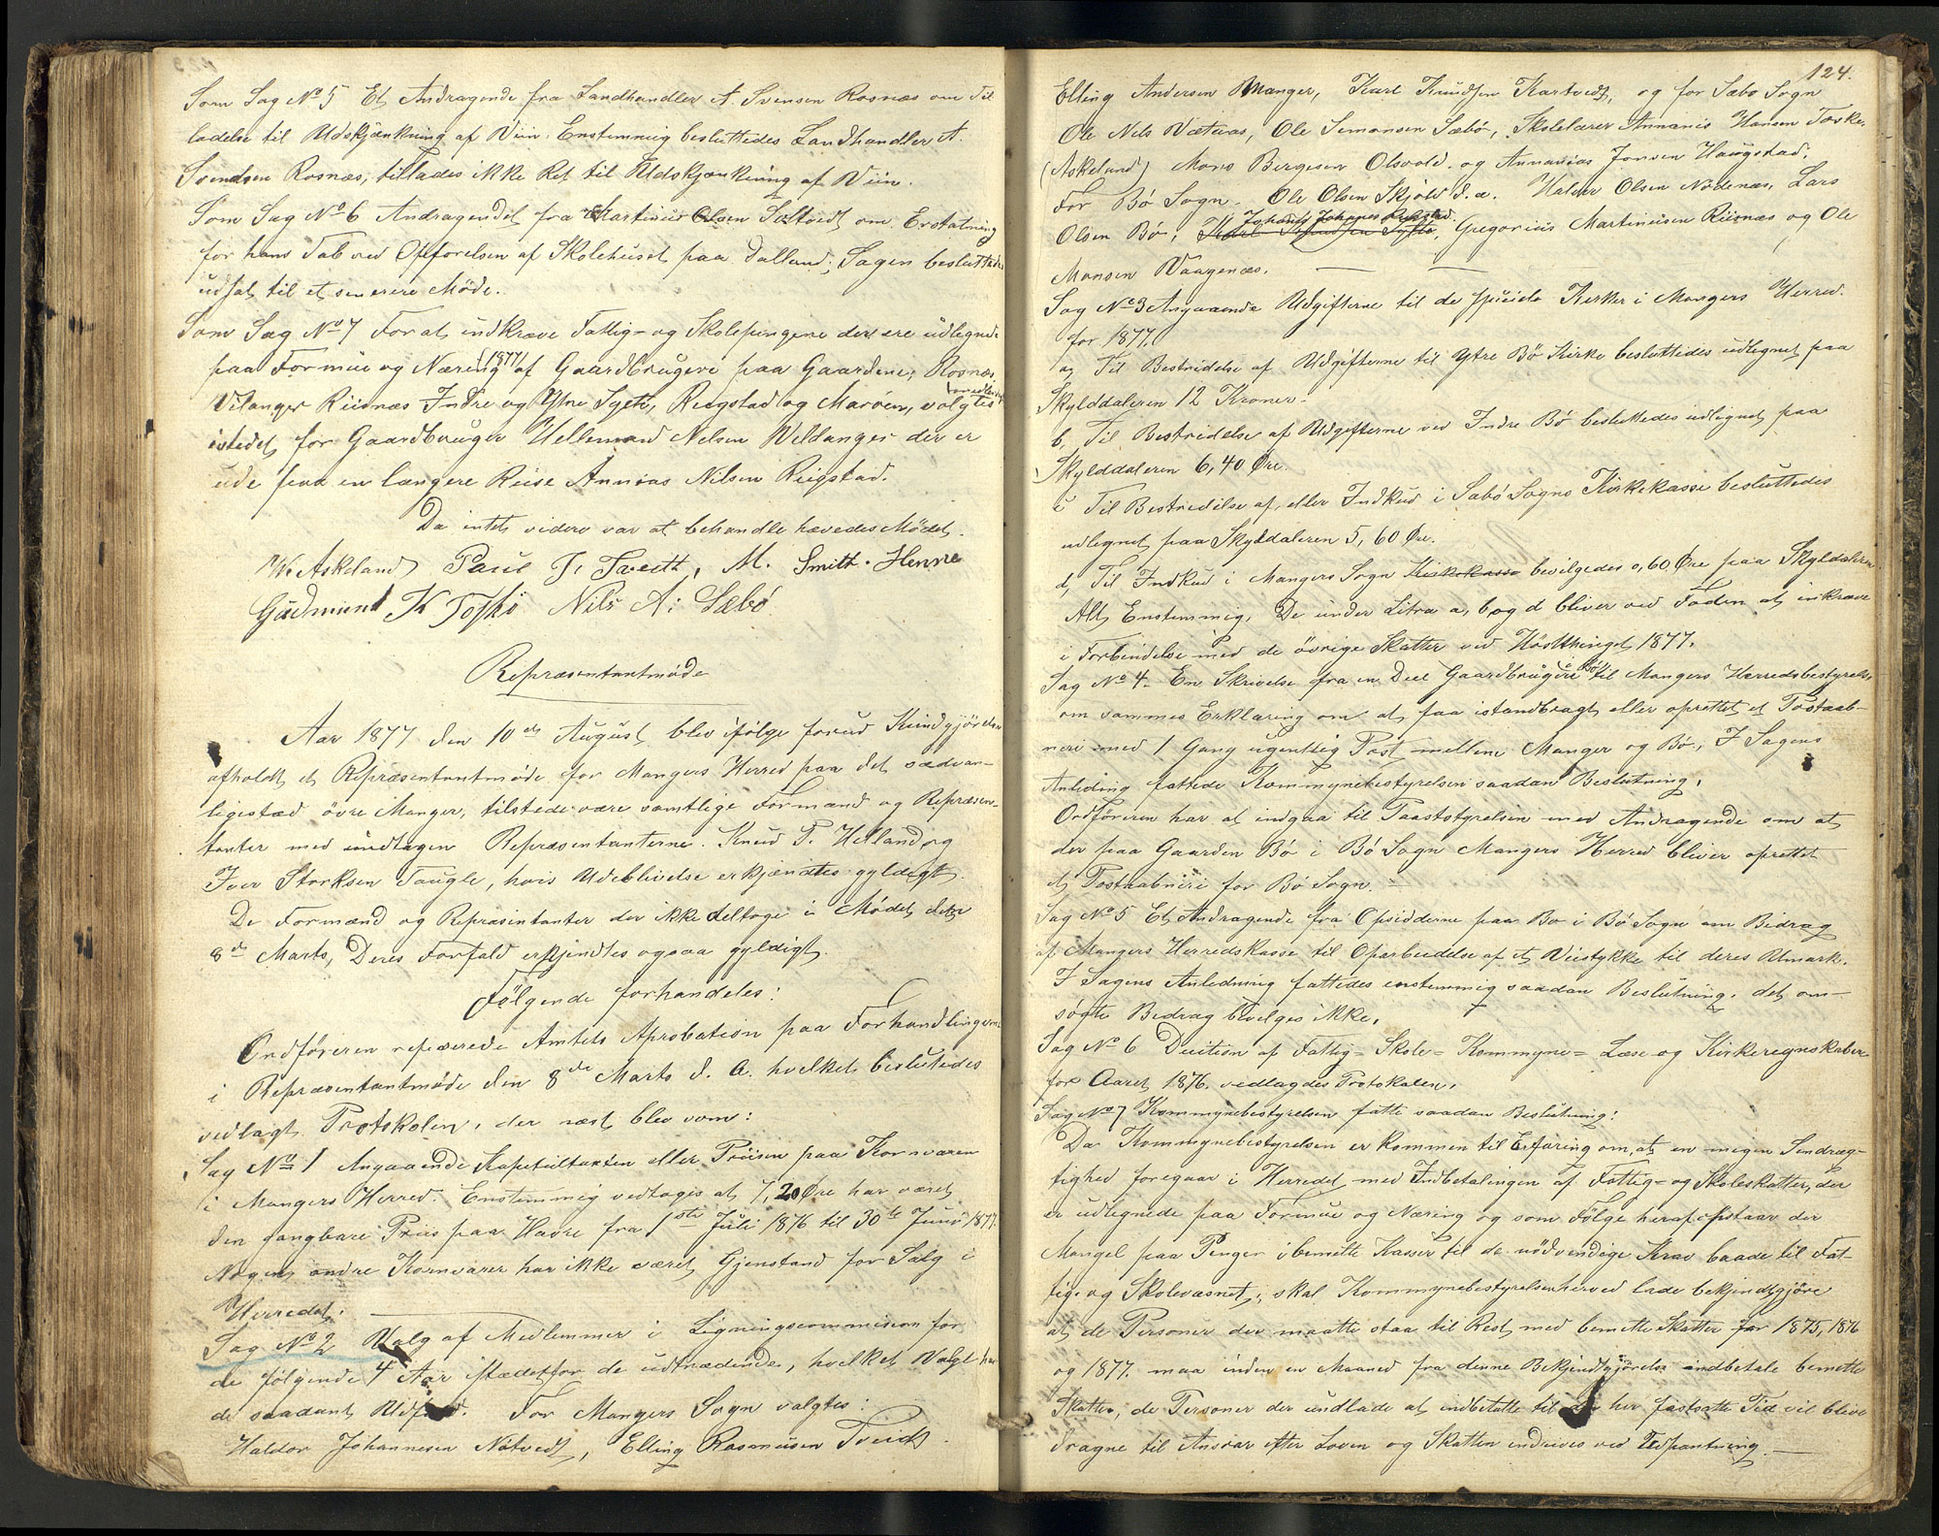 Som Sag No 5 Et Andragende fra Landhandler A. Svensen Rosnæs om Til
ladelse til Udskjænkning af Viin. Enstemmig besluttedes Landhandler A.
Svendsen Rosnæs, tillades ikke Ret til Udskjænkning af Viin.
Som Sag No 6 Andragendet fra Martinus Olsen Sæltvedt om Erstatning
for hans Tab ved Opførelsen af Skolehuset paa Dalland; Sagen besluttedes
udsat til et senerere Møde.
Som Sag No 7 For at indkræve Fattig- og Skolepengene der ere udlegnede
paa Formue og Næring 1877 af Gaardbrugere paa Gaardene; Rosnæs
Vetanger Riisnæs Indre og Ytre Sytt, Rigstad og Marøen, valgtes
istedet for Gaardbruger Hellemand Nilsen Veldanger der er
ude paa en længere Reise Annias Nilsen Rigstad.
Da intet videre var at behandle hævedes Mødet.
W. Askeland Paul J. Tveitt, M. Smitt. Henne
Gudmund K Toskø Nils A. Sæbø
Repræsentantmøde
Aar 1877 den 10de August blev ifølge forud Kundgjørelse
afholdt et Repræsentantmøde for Mangers Herred paa det sædvan-
ligested øvre Manger, tilstede være samtlige Formænd og Repræsen-
tanter med undtagen Repræsentanterne. Knud T. Helland og
Iver Storksen Taugle, hvis Udeblivelse erkjendtes gyldigt.
De Formænd og Repræsintanter der ikke deltoge i Mødet dette
8de Marts, Deres Forfald erkjendtes ogsaa gyldigt.
Følgende forhandeles:
Ordføreren refererede Amtets Aprobation paa Forhandlingerne
i Repræsentantmøde den 8de Marts d. A. hvelket beslutedes
vedlagt Protokolen, der næst blev som:
Sag No 1 Angaaende Kapetultaxten eller Priisen paa Kornvaren
i Mangers Herred. Enstemmig vedtoges at 7,20 Øre har været
den gangbare Priis paa Havre fra 1ste Juli 1876 til 30te Juni 1877.
Nogen andre Kornvarer har ikke været Gjenstand for Salg i
Herredet.
Sag No 2 Valg af Medlemmer i Ligningscommision for
de følgende 4 Aar istædetfor de udtrædende, hvelket Valgt har
de saadant Udfald. For Mangers Sogn valgtes:
Haldor Johannesen Nøtvedt, Elling Rasmusen Tveidt.
124.
Elling Andersen Manger, Karl Knudsen Kartvedt, og for Sæbø Sogn
Ole Nels Vætaas, Ole Simonsen Sæbø, Skolelærer Annanis Hansen Toske.
(Askeland) Mons Bergesen Olsvold. og Annanias Jonsen Haugstad.
For Bø Sogn. Ole Olsen Skjold d. a. Halver Olsen Nødenæs, Lars
Johanes Johanes Rigstad.
Olsen Bø, Gregorius Martinusen Riisnæs og Ole
Monsen Vaagenæs.
Sag No 3 Angaaende Udgifterne til de speciele Kerker i Mangers Herred.
for 1877.
a, Til Bestridelse af Udgifterne til Ytre Bø Kirke besluttedes udlegnet paa
Skylddaleren 12 Kroner.
b, Til Bestridelse af Udgifterne ved Indre Bø besluttedes udlignet paa
Skylddaleren 6,40 Øre.
c Til Bestridelse af, eller Indkud i Sæbø Sogns Kirkekasse besluttedes
udlegnet paa Skylddaleren 5,60 Øre.
d, Til Indkud i Mangers Sogn Kirkekasse bevilgedes 0,60 Øre paa Skyldaleren
Alt Enstemmig. De under Litra a, b og d bliver ved Foden at inkræve
i Forbindelse med de øvrige Skatter ved Høstthinget 1877.
Sag No 4. En Skrivelse fra en Deel Gaardbrugere Bø til Mangers Herredsbestyrelse
om sammes Erklæring om at faa istandbragt eller oprettet et Postaab-
neri med 1 Gang ugentlig Post mellem Manger og Bø, I Sagens
Anledning fattede Kommynebestyrelsen saadan Beslutning.
Ordføreren har at indgaa til Paaststyrelsen med Andragende om at
der paa Gaarden Bø i Bø Sogn Mangers Herred bliver oprettet
et Postaabneri for Bø Sogn.
Sag No 5 Et Andragende fra Opsidderne paa Bø i Bø Sogn om Bidrag
af Mangers Herredskasse til Oparbeidelse af et Veistykke til deres Utmark.
I Sagens Anledning fattedes enstemmig saadan Beslutning. det om-
søgte Bedrag bevilges ikke.
Sag No 6 Decition af Fattig- Skole- Kommyne- Læse og Kirkeregnskaber
for Aaret 1876. vedlagdes Protokolen.
Sag No 7 Kommynebestyrelsen fatte saadan Beslutning:
Da Kommynebestyrelsen er kommen til Erfaring om, at en megen Sendræg-
tighed foregaar i Herredet med Indbetalingen af Fattig- og Skoleskatter, der
er udlegnede paa Formue og Næring og som Følge heraf opstaar der
Mangel paa Penger i bemelte Kasser til de nødvendige Krav baade til Fat-
tig- og Skolevæsnet, skal Kommynebestyrelsen herved lade bekjendtgjøre
at de Personer der maatte staa til Rest med bemelte Skatter for 1875, 1876
og 1877. maa inden en Maaned fra denne Bekjendtgjørelse indbetale bemelte
Skatter, de Personer der undlade at indbetalte til den her fastsatte Tid vil blive
dragne til Ansvar efter Loven og Skatten indrives ved Udpantning.